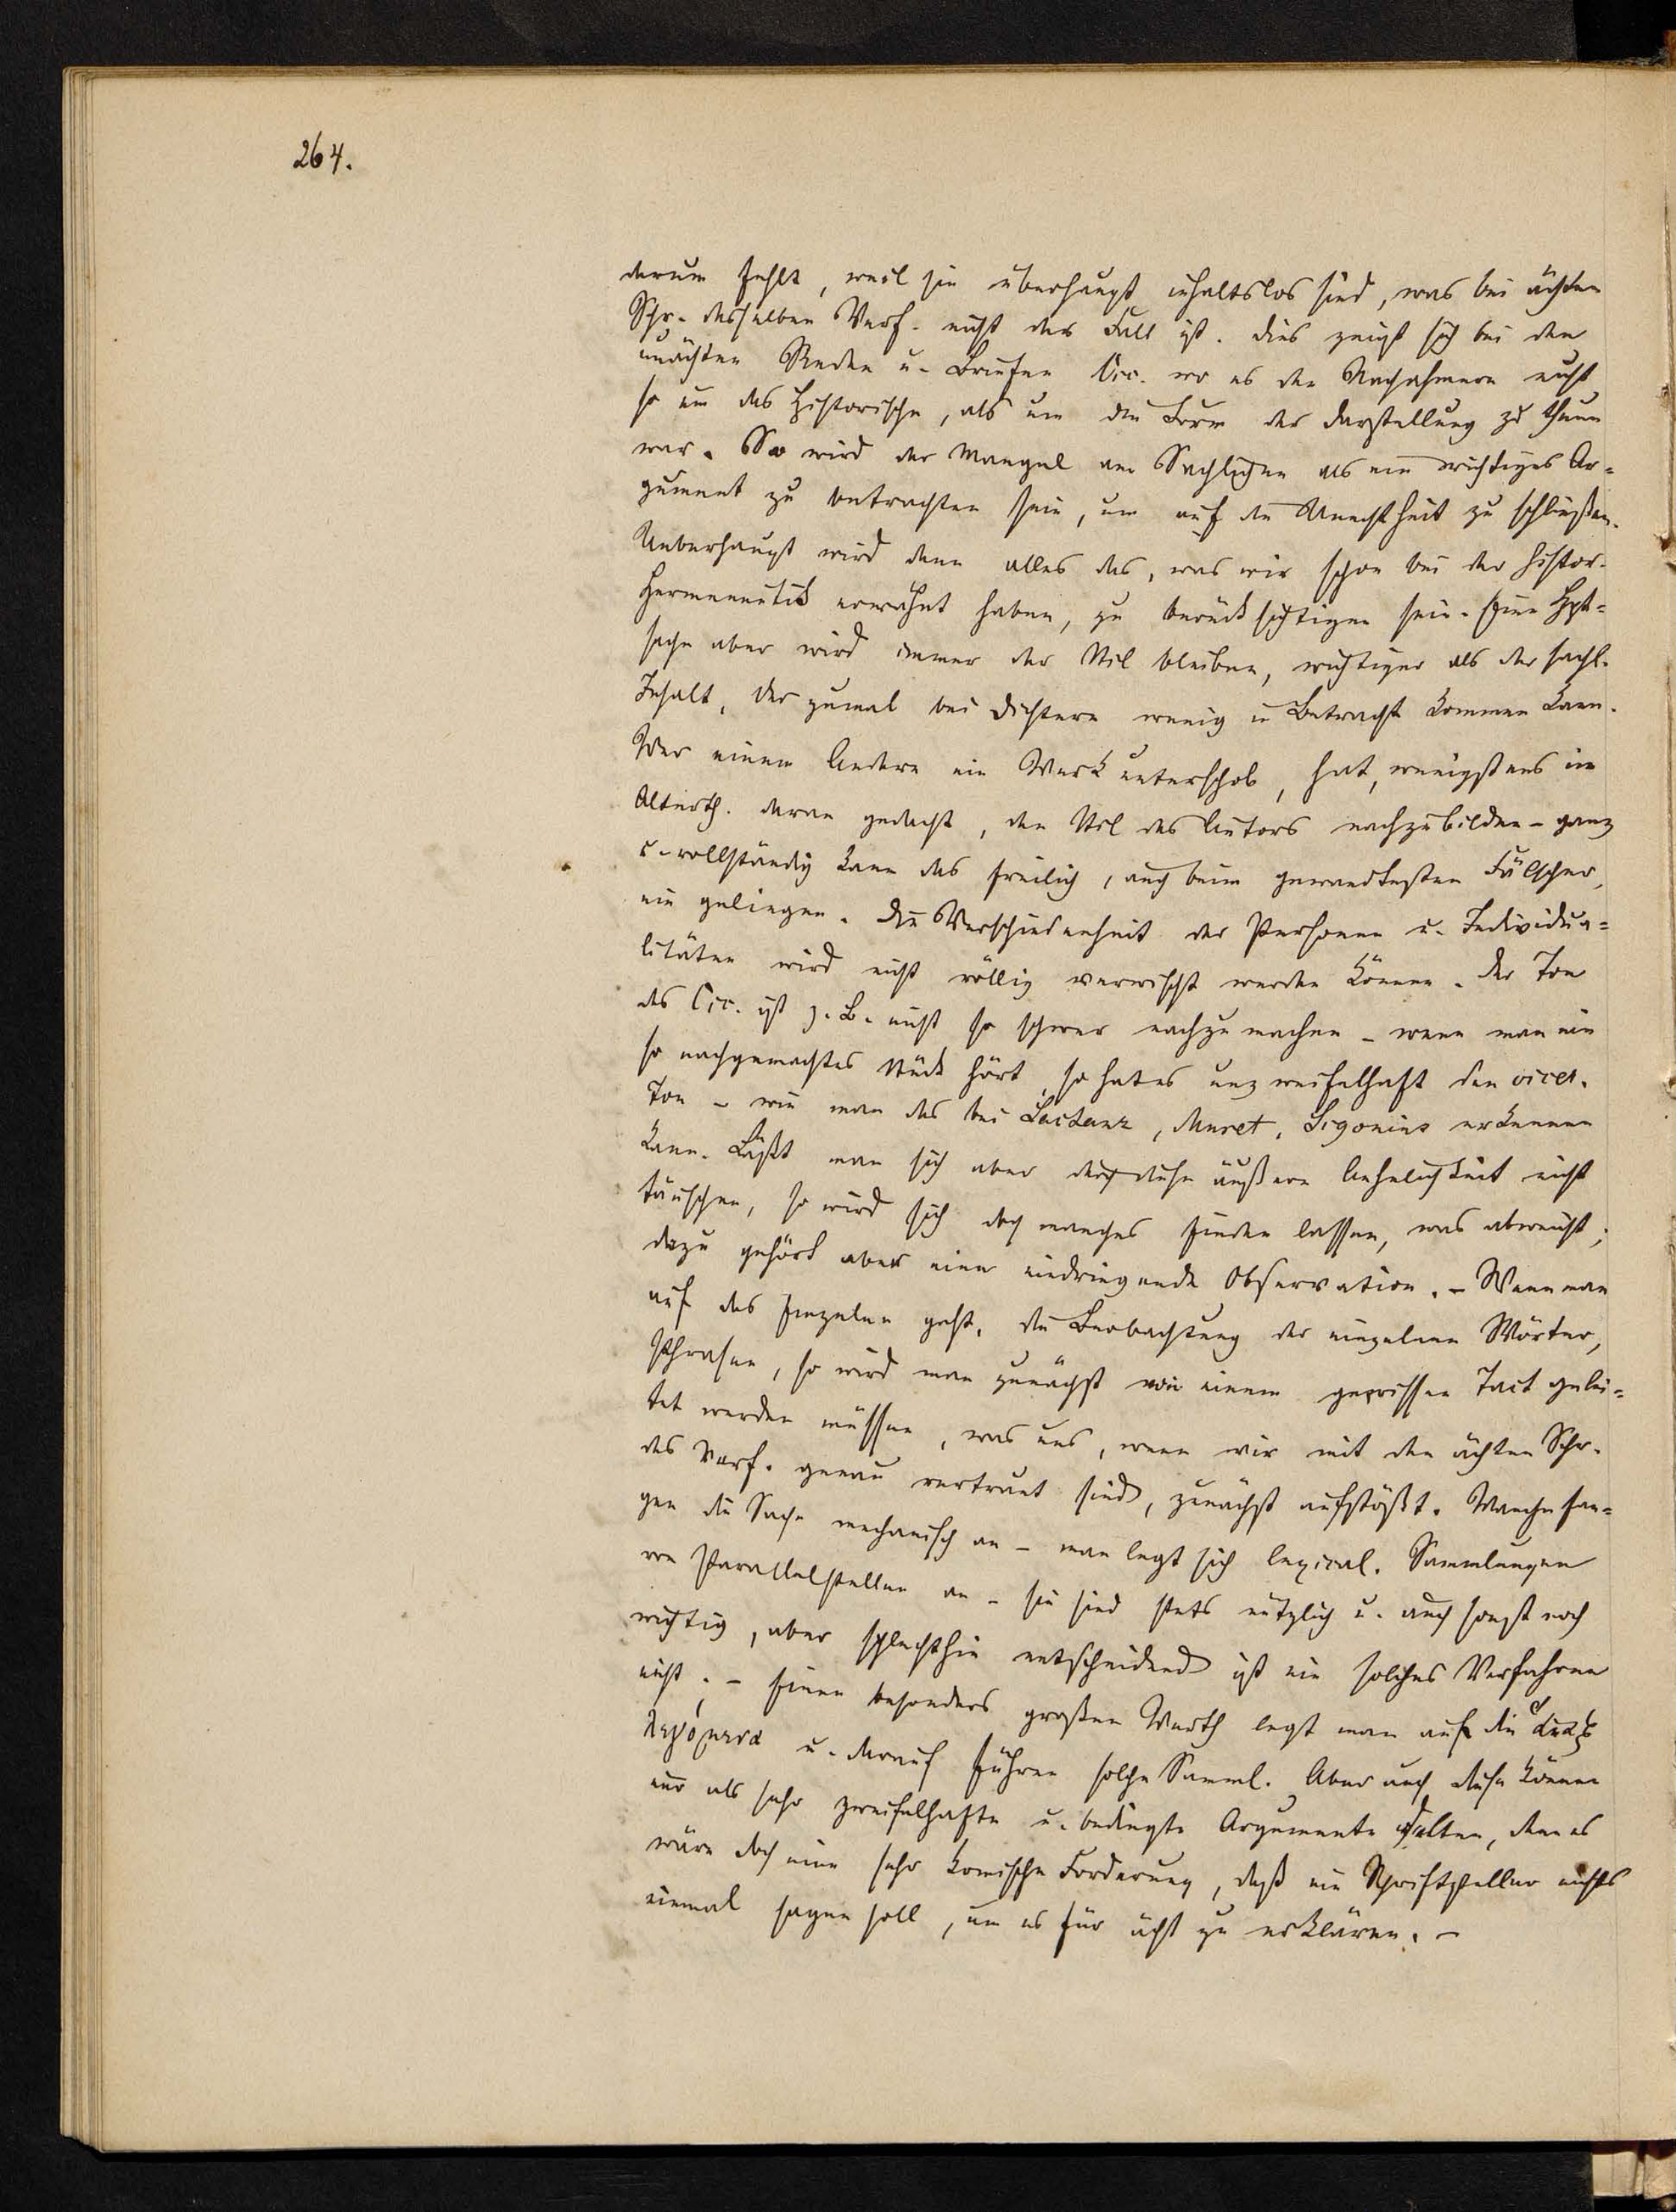 264.
darum fehlt, weil sie überhaupt inhaltslos sind, was bei ächten
Schr. desselben Verf. nicht der Fall ist. Dies zeigt sich bei den
unächten Reden u. Briefen Cic. wo es den Nachahmern nicht
so um das Historische, als um die Form der Darstellung zu thun
war. So wird der Mangel an Sachlichem als ein wichtiges Ar=
gument zu betrachten sein, um auf die Unechtheit zu schließen.
Ueberhaupt wird denn alles das, was wir schon bei der histor.
Hermeneutik erwähnt haben, zu berücksichtigen sein. Eine Hpt=
sache aber wird immer der Stil bleiben, wichtiger als der sachl.
Inhalt, der zumal bei Dichtern wenig in Betracht kommen kann.
Wer einem Andern ein Werk unterschob, hat, wenigstens im
Alterth. daran gedacht, den Stil des Autors nachzubilden – ganz
u. vollständig kann das freilich, auch beim gewandtesten Fälscher,
nie gelingen. Die Verschiedenheit der Personen u. Individua=
litäten wird nicht völlig verwischt werden können. Der Ton
des Cic. ist z. B. nicht so schwer nachzumachen – wenn man ein
so nachgemachtes Stück hört, so hat es unzweifelhaft den cicer.
Ton – wie man das bei Lactanz, Muret, Sigonius erkennen
kann. Läßt man sich aber durch diese äußere Aehnlichkeit nicht
täuschen, so wird sich doch manches finden lassen, was abweicht;
dazu gehört aber eine eindringende Observation. – Wenn man
auf das Einzelne geht, die Beobachtung der einzelnen Wörter,
Phrasen, so wird man zunächst von einem gewissen Tact gelei=
tet werden müssen, was uns, wenn wir mit den ächten Schr.
des Verf. genau vertraut sind, zunächst aufstößt. Manche fan=
gen die Sache mechanisch an – man legt sich lexical. Sammlungen
von Parallelstellen an – sie sind stets nützlich u. auch sonst noch
wichtig, aber schlechthin entscheidend ist ein solches Verfahren
nicht. – Einen besonders großen Werth legt man auf die ἅπαξ
λεγόμενα u. darauf führen solche Samml. Aber auch diese können
nur als sehr zweifelhafte u. bedingte Argumente gelten, denn es
wäre doch eine sehr komische Forderung, daß ein Schriftsteller nichts
einmal sagen soll, um es für ächt zu erklären. –